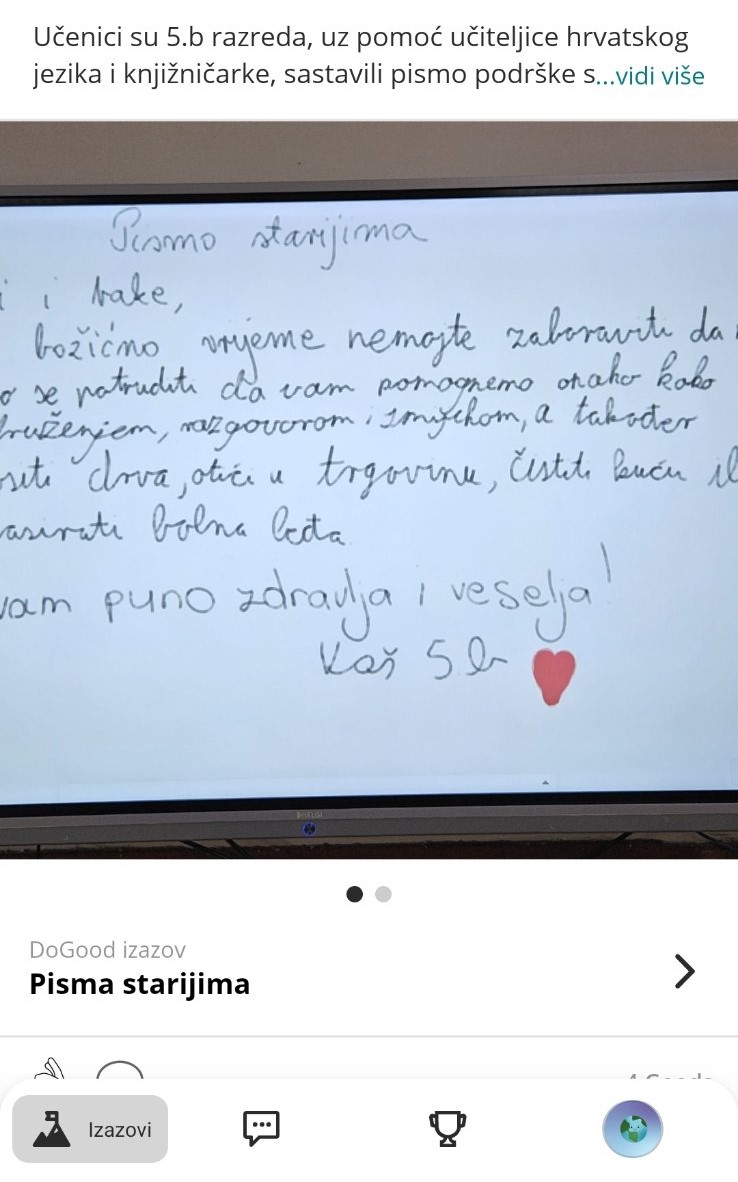 Učenici su 5.b razreda, uz pomoć učiteljice hrvatskog
jezika i knjižničarke, sastavili pismo podrške s...vidi više
Pismo starijima
i i bake,
božićno vrijeme nemojte zaboraviti da
o se potruditi da vam pomognemo onako kako
druženjem, razgovorom i smijehom, a također
siti drva, otići u trgovinu, čistiti kuću il
masirati bolna leđa
vam puno zdravlja i veselja!
Vaš 5.b
DoGood izazov
Pisma starijima
Izazovi